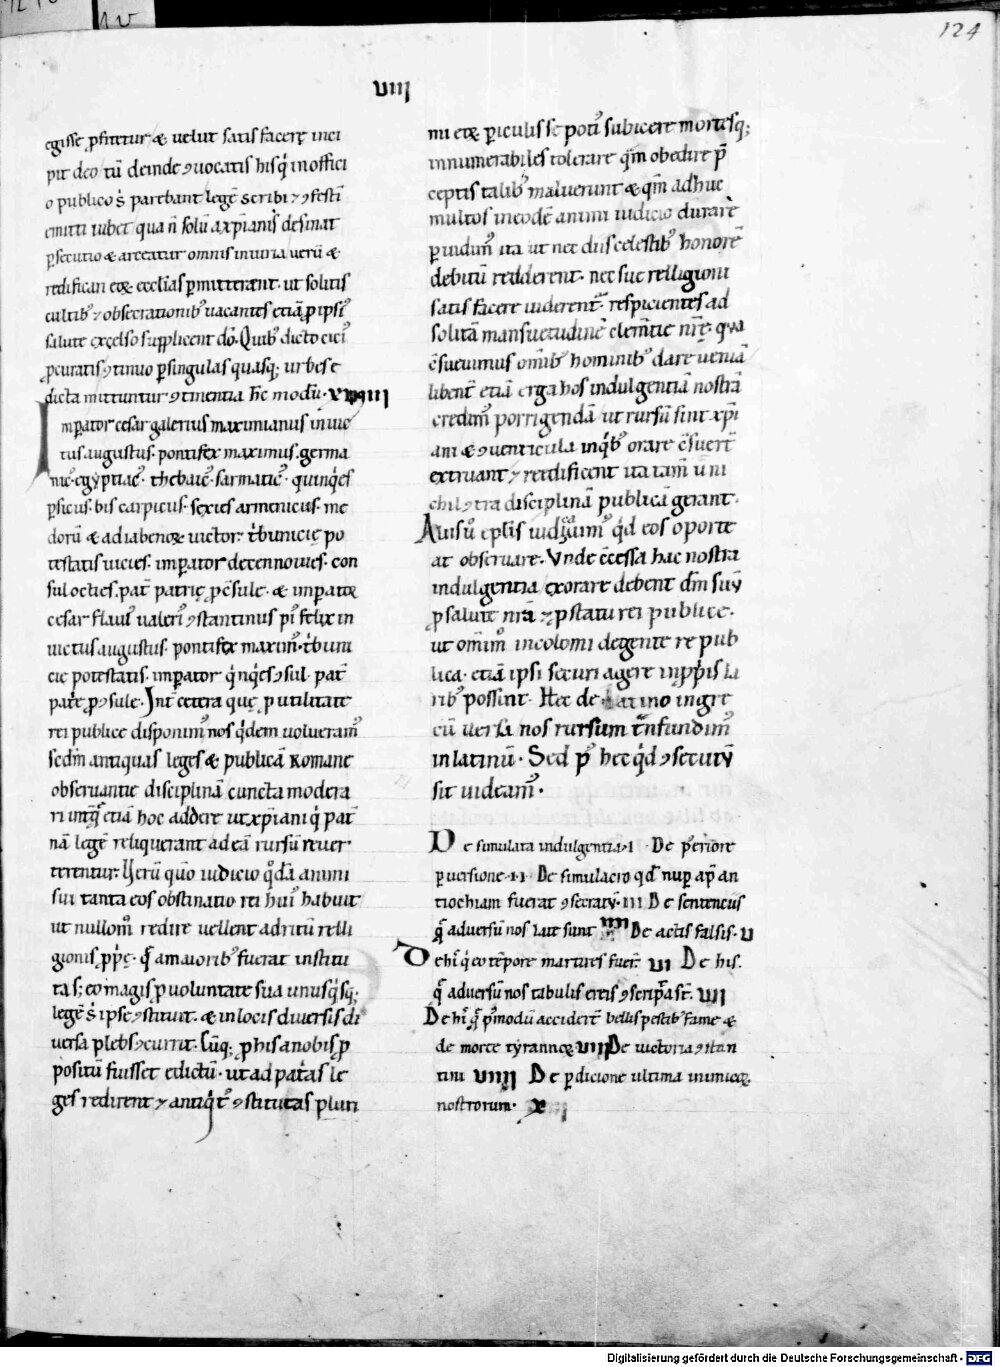 124
VIIII
egisse ꝓfitetur & uelut satis facere inci
pit deo tū deinde ꝯuocatis hisq' in offici
o publico s' parebant legē scribi & ꝯfestī
emitti iubet qua n̄ solū a xp̄ianis desinat
ꝑsecutio & arceatur omnis iniuria uerū &
redificari eoꝝ ecclīas ꝑmitterent. ut solitis
cultib; & obsecrationib; uacantes etiā ꝓ ipsi'
salute excelso supplicent dō. Quib; dicto cici'
ꝓcuratis ꝯtinuo ꝑ singulas quasq; urbes e
dicta mittuntur ꝯtinentia hc̄ modū.
Imꝑator cesar galerius maximianus inuic
tus augustus. pontifex maximus. germa
nic'. egyptiac'. thebaic'. sarmatic'. quinq'es
ꝑsicus. bis carpicus. sexies armenicus. me
dorū & adiabenoꝝ uictor. t'bunicię po
testatis uicies. imꝑator decennouies. con
sul octies. pat' patrię ꝓcsule. & imꝑator
cesar flaui' ualeri' ꝯstantinus pi' felix in
uictus augustus. pontifex maxim'. t'buni
cię potestatis. imꝑator q'nq'es ꝯsul. pat'
patrię ꝓꝯsule. Int' cetera quę ꝓ utilitate
rei publice disponim' nos q'dem uolueram'
scdm̄ antiquas leges & publicā romane
obseruantie disciplinā cuncta modera
ri int'q; etiā hoc addere ut xp̄iani q' pat'
nā legē reliquerant ad eā rursū reuer
terentur. Uerū qn̄o iudicio q'dā animi
sui tanta eos obstinatio rei hui' habuit
ut nullom̄ redire uellent ad ritū relli
gionis ꝓpę. q̄ a maiorib; fuerat institu
tas; eo magis ꝓ uoluntate sua unusq'sq;
legē s' ipse ꝯstituit. & in locis diuersis di
uersa plebs ꝯcurrit. Cūq; ꝓ his a nobis ꝓ
positū fuisset edictū. ut ad pat'as le
ges redirent & antiq't' ꝯstitutas pluri
mi eoꝝ ꝑiculis se poti' subicere mortesq;
innumerabiles tolerare q̄m obedire p̄
ceptis talib; maluerunt & q̄m adhuc
multos in eodē animi iudicio durare
ꝑuidim' ita ut nec diis celestib; honorē
debitū redderent. nec sue relligioni
satis facere uiderent'. respicientes ad
solitā mansuetudinē clemtie nr̄ę. qua
ꝯsueuimus om̄ib; hominib; dare ueniā
libent' etiā erga hos indulgentiā nostrā
credim' porrigendā ut rursū sint xp̄i
ani & ꝯuenticula in q'b; orare ꝯsuer̄t
extruant & reedificent ita tam̄ uni
chil ꝯtra disciplinā publicā gerant.
Aliis ū epl̄is iudicam' q'd eos oporte
at obseruare. Vnde cc̄essa hac nostra
indulgentia exorare debent dm̄ suū
ꝓ salute nr̄a & ꝓ statu rei publice.
ut om̄im̄ incolomi degente re pub
lica. etiā ipsi securi agere in ꝓpis la
rib; possint. Hec de latino in gre
cū uersa nos rursum t̄nsfundim'
in latinū. Sed p' hec q'd ꝯsecutū
sit uideam'.
De simulata indulgentia. I. De ꝑeriore
ꝑuersione. II. De simulacro qd' nuꝑ ap' an
tiochiam fuerat ꝯsecratū. III De sententiis
q̄ aduersū nos late sunt IIII De actis falsis. V
De hi' q' eo tēpore martires fuer̄. VI De his.
q̄ aduersū nos tabulis ereis ꝯscripta st̄. VII
De hi' q̄ p' modū accider̄t bellis pestib; fame &
de morte tyrannoꝝ VIII De uictoria ꝯstan
tini VIIII De ꝑdicione ultima inimicoꝝ
nostrorum. X
Digitalisierung gefördert durch die Deutsche Forschungsgemeinschaft - DFG